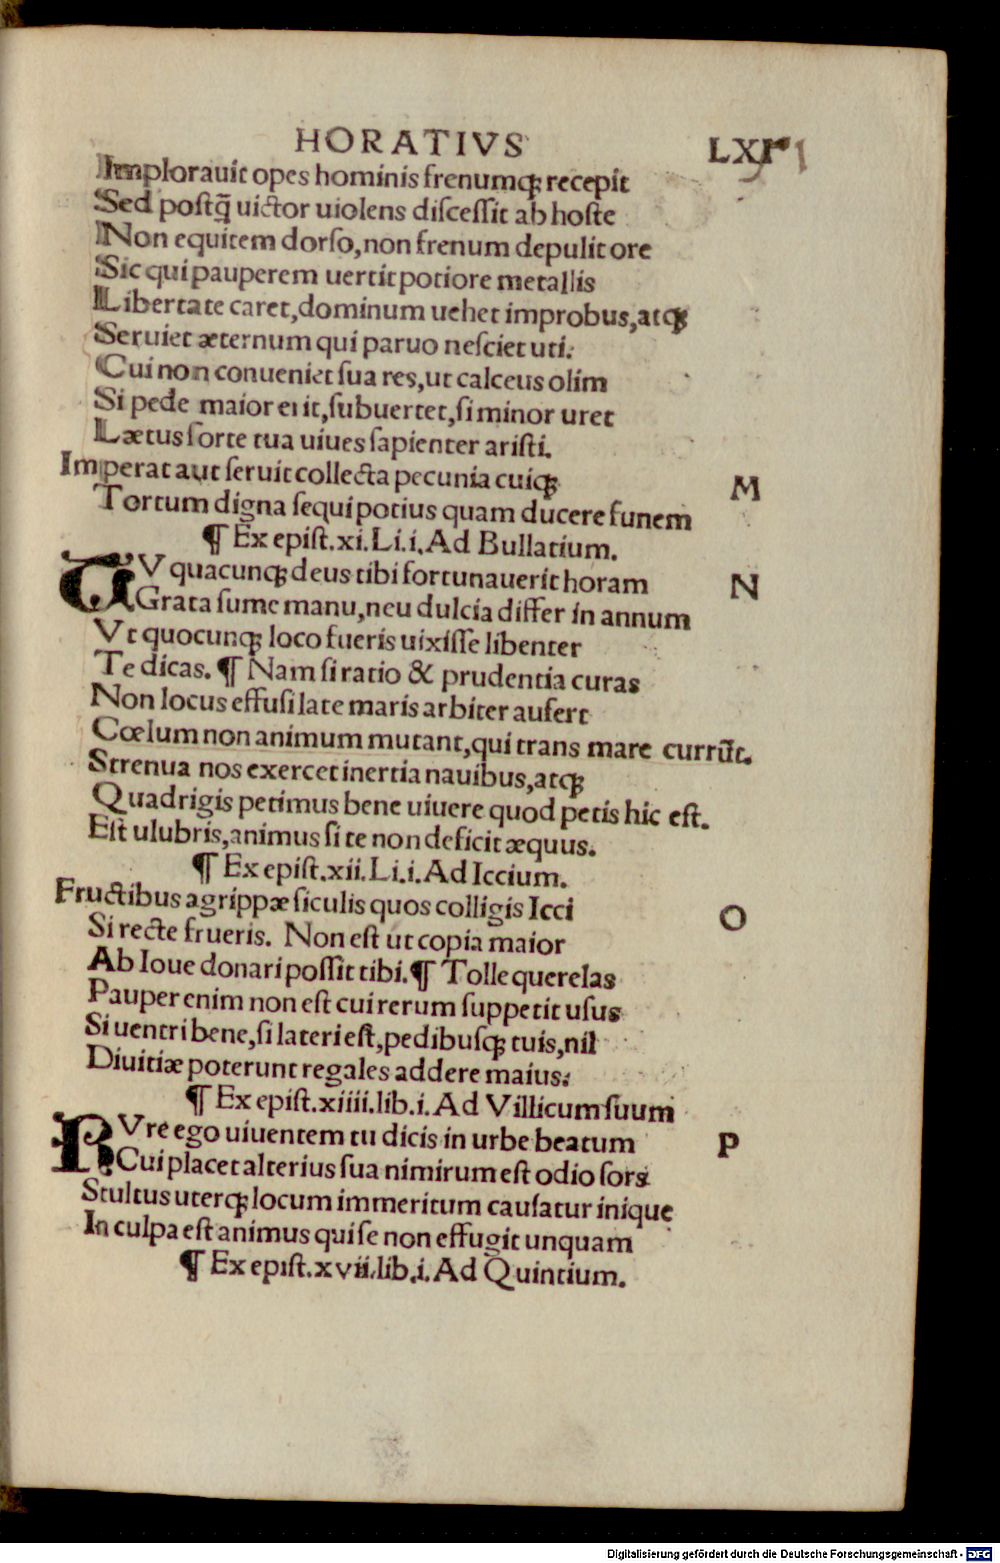 HORATIVS LXI
Implorauit opes hominis frenumqꝫ recepit
Sed postq̃ uictor uiolens discessit ab hoste
Non equitem dorso, non frenum depulit ore
Sic qui pauperem uertit potiore metallis
Libertate caret, dominum uehet improbus, atqꝫ
Seruiet æternum qui paruo nesciet uti.
Cui non conueniet sua res, ut calceus olim
Si pede maior erit, subuertet, si minor uret
Lætus sorte tua uiues sapienter aristi.
Imperat aut seruit collecta pecunia cuiqꝫ M
Tortum digna sequi potius quam ducere funem
¶ Ex epist. xi. Li. i. Ad Bullatium.
TV quacunqꝫ deus tibi fortunauerit horam N
Grata sume manu, neu dulcia differ in annum
Vt quocunqꝫ loco fueris uixisse libenter
Te dicas. ¶ Nam si ratio & prudentia curas
Non locus effusi late maris arbiter aufert
Cœlum non animum mutant, qui trans mare currũt.
Strenua nos exercet inertia nauibus, atqꝫ
Quadrigis petimus bene uiuere quod petis hic est.
Est ulubris, animus si te non deficit æquus.
¶ Ex epist. xii. Li. i. Ad Iccium.
Fructibus agrippæ siculis quos colligis Icci O
Si recte frueris. Non est ut copia maior
Ab Ioue donari possit tibi. ¶ Tolle querelas
Pauper enim non est cui rerum suppetit usus
Si uentri bene, si lateri est, pedibusqꝫ tuis, nil
Diuitiæ poterunt regales addere maius.
¶ Ex epist. xiiii. lib. i. Ad Villicum suum
RVre ego uiuentem tu dicis in urbe beatum P
Cui placet alterius sua nimirum est odio sors
Stultus uterqꝫ locum immeritum causatur inique
In culpa est animus qui se non effugit unquam
¶ Ex epist. xvii. lib. i. Ad Quintium.
Digitalisierung gefördert durch die Deutsche Forschungsgemeinschaft - DFG